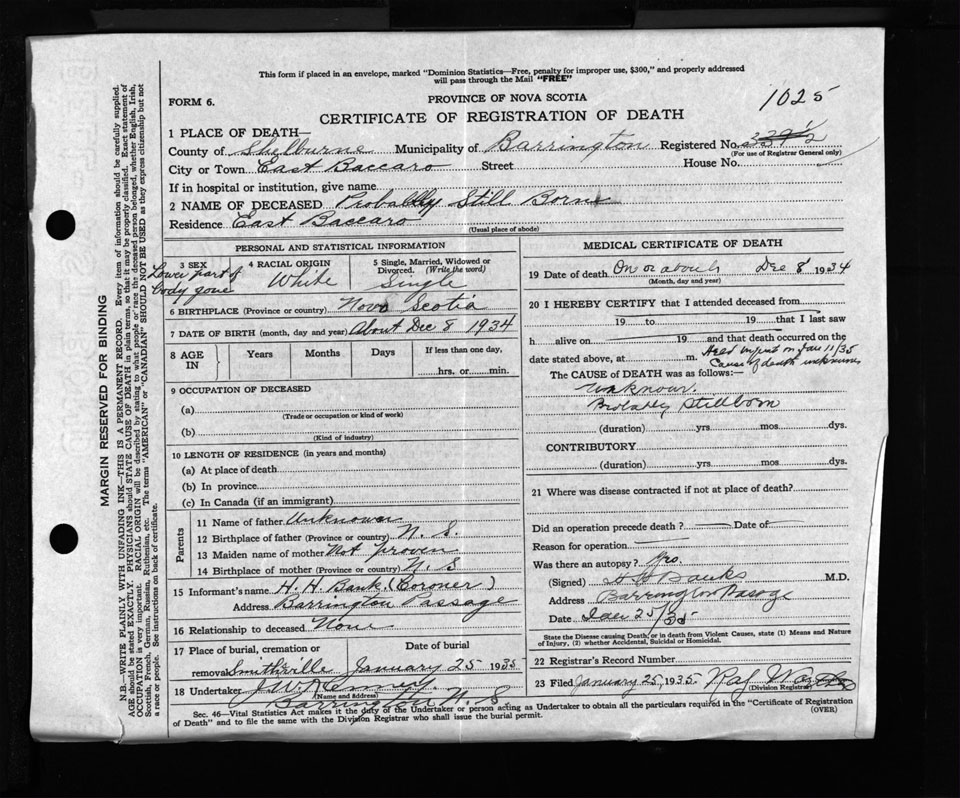 This form if placed in an envelope, marked "Dominion Statistics—Free, penalty for improper use, $300," and properly addressed
will pass through the Mail "FREE"
FORM 6.
PROVINCE OF NOVA SCOTIA
1025
CERTIFICATE OF REGISTRATION OF DEATH
1 PLACE OF DEATH—
County of Shelburne Municipality of Barrington Registered No.
(For use of Registrar General only)
City or Town East Baccaro Street House No.
If in hospital or institution, give name
2 NAME OF DECEASED Probably Still Born
Residence East Baccaro
(Usual place of abode)
PERSONAL AND STATISTICAL INFORMATION
3 SEX
Lower part of body gone
4 RACIAL ORIGIN
White
5 Single, Married, Widowed or Divorced. (Write the word)
Single
6 BIRTHPLACE (Province or country) Nova Scotia
7 DATE OF BIRTH (month, day and year) About Dec 8 1934
8 AGE IN
Years Months Days If less than one day,
hrs. or min.
9 OCCUPATION OF DECEASED
(a)
(Trade or occupation or kind of work)
(b)
(Kind of industry)
10 LENGTH OF RESIDENCE (in years and months)
(a) At place of death
(b) In province
(c) In Canada (if an immigrant)
Parents
11 Name of father Unknown
12 Birthplace of father (Province or country) N. S.
13 Maiden name of mother Not proven
14 Birthplace of mother ( " " ) N. S
15 Informant's name H. H Banks (Coroner)
Address Barrington Passage
16 Relationship to deceased None
17 Place of burial, cremation or Date of burial
removal Smithville January 25 1935
18 Undertaker
(Name and Address)
Barrington N. S.
MEDICAL CERTIFICATE OF DEATH
19 Date of death On or about Dec 8 1934
(Month, day and year)
20 I HEREBY CERTIFY that I attended deceased from
19 to 19 that I last saw
h alive on 19 and that death occurred on the
date stated above, at m. Held Inquest on Jan 11/35
Cause of death unknown
The CAUSE OF DEATH was as follows:—
Unknown
Probably Stillborn
(duration) yrs. mos. dys.
CONTRIBUTORY
(duration) yrs. mos. dys.
21 Where was disease contracted if not at place of death?
Did an operation precede death? Date of
Reason for operation
Was there an autopsy?
(Signed) H H Banks M.D.
Address Barrington Passage
Date Jan 25/35
State the Disease causing Death, or in death from Violent Causes, state (1) Means and Nature of Injury, (2) whether Accidental, Suicidal or Homicidal.
22 Registrar's Record Number
23 Filed January 25, 1935.
(Division Registrar)
Sec. 46—Vital Statistics Act makes it the duty of the Undertaker or person acting as Undertaker to obtain all the particulars required in the "Certificate of Registration
of Death" and to file the same with the Division Registrar who shall issue the burial permit. (OVER)
MARGIN RESERVED FOR BINDING
N.B.—WRITE PLAINLY WITH UNFADING INK—THIS IS A PERMANENT RECORD. Every item of information should be carefully supplied.
AGE should be stated EXACTLY. PHYSICIANS should STATE CAUSE OF DEATH in plain terms, so that it may be properly classified. Exact statement of
OCCUPATION is very important. RACIAL ORIGIN will be described by stating to what people or race the deceased person belonged, whether English, Irish,
Scottish, French, German, Russian, Ruthenian, etc. The terms "AMERICAN" or "CANADIAN" SHOULD NOT BE USED as they express citizenship but not
a race or people. See instructions on back of certificate.